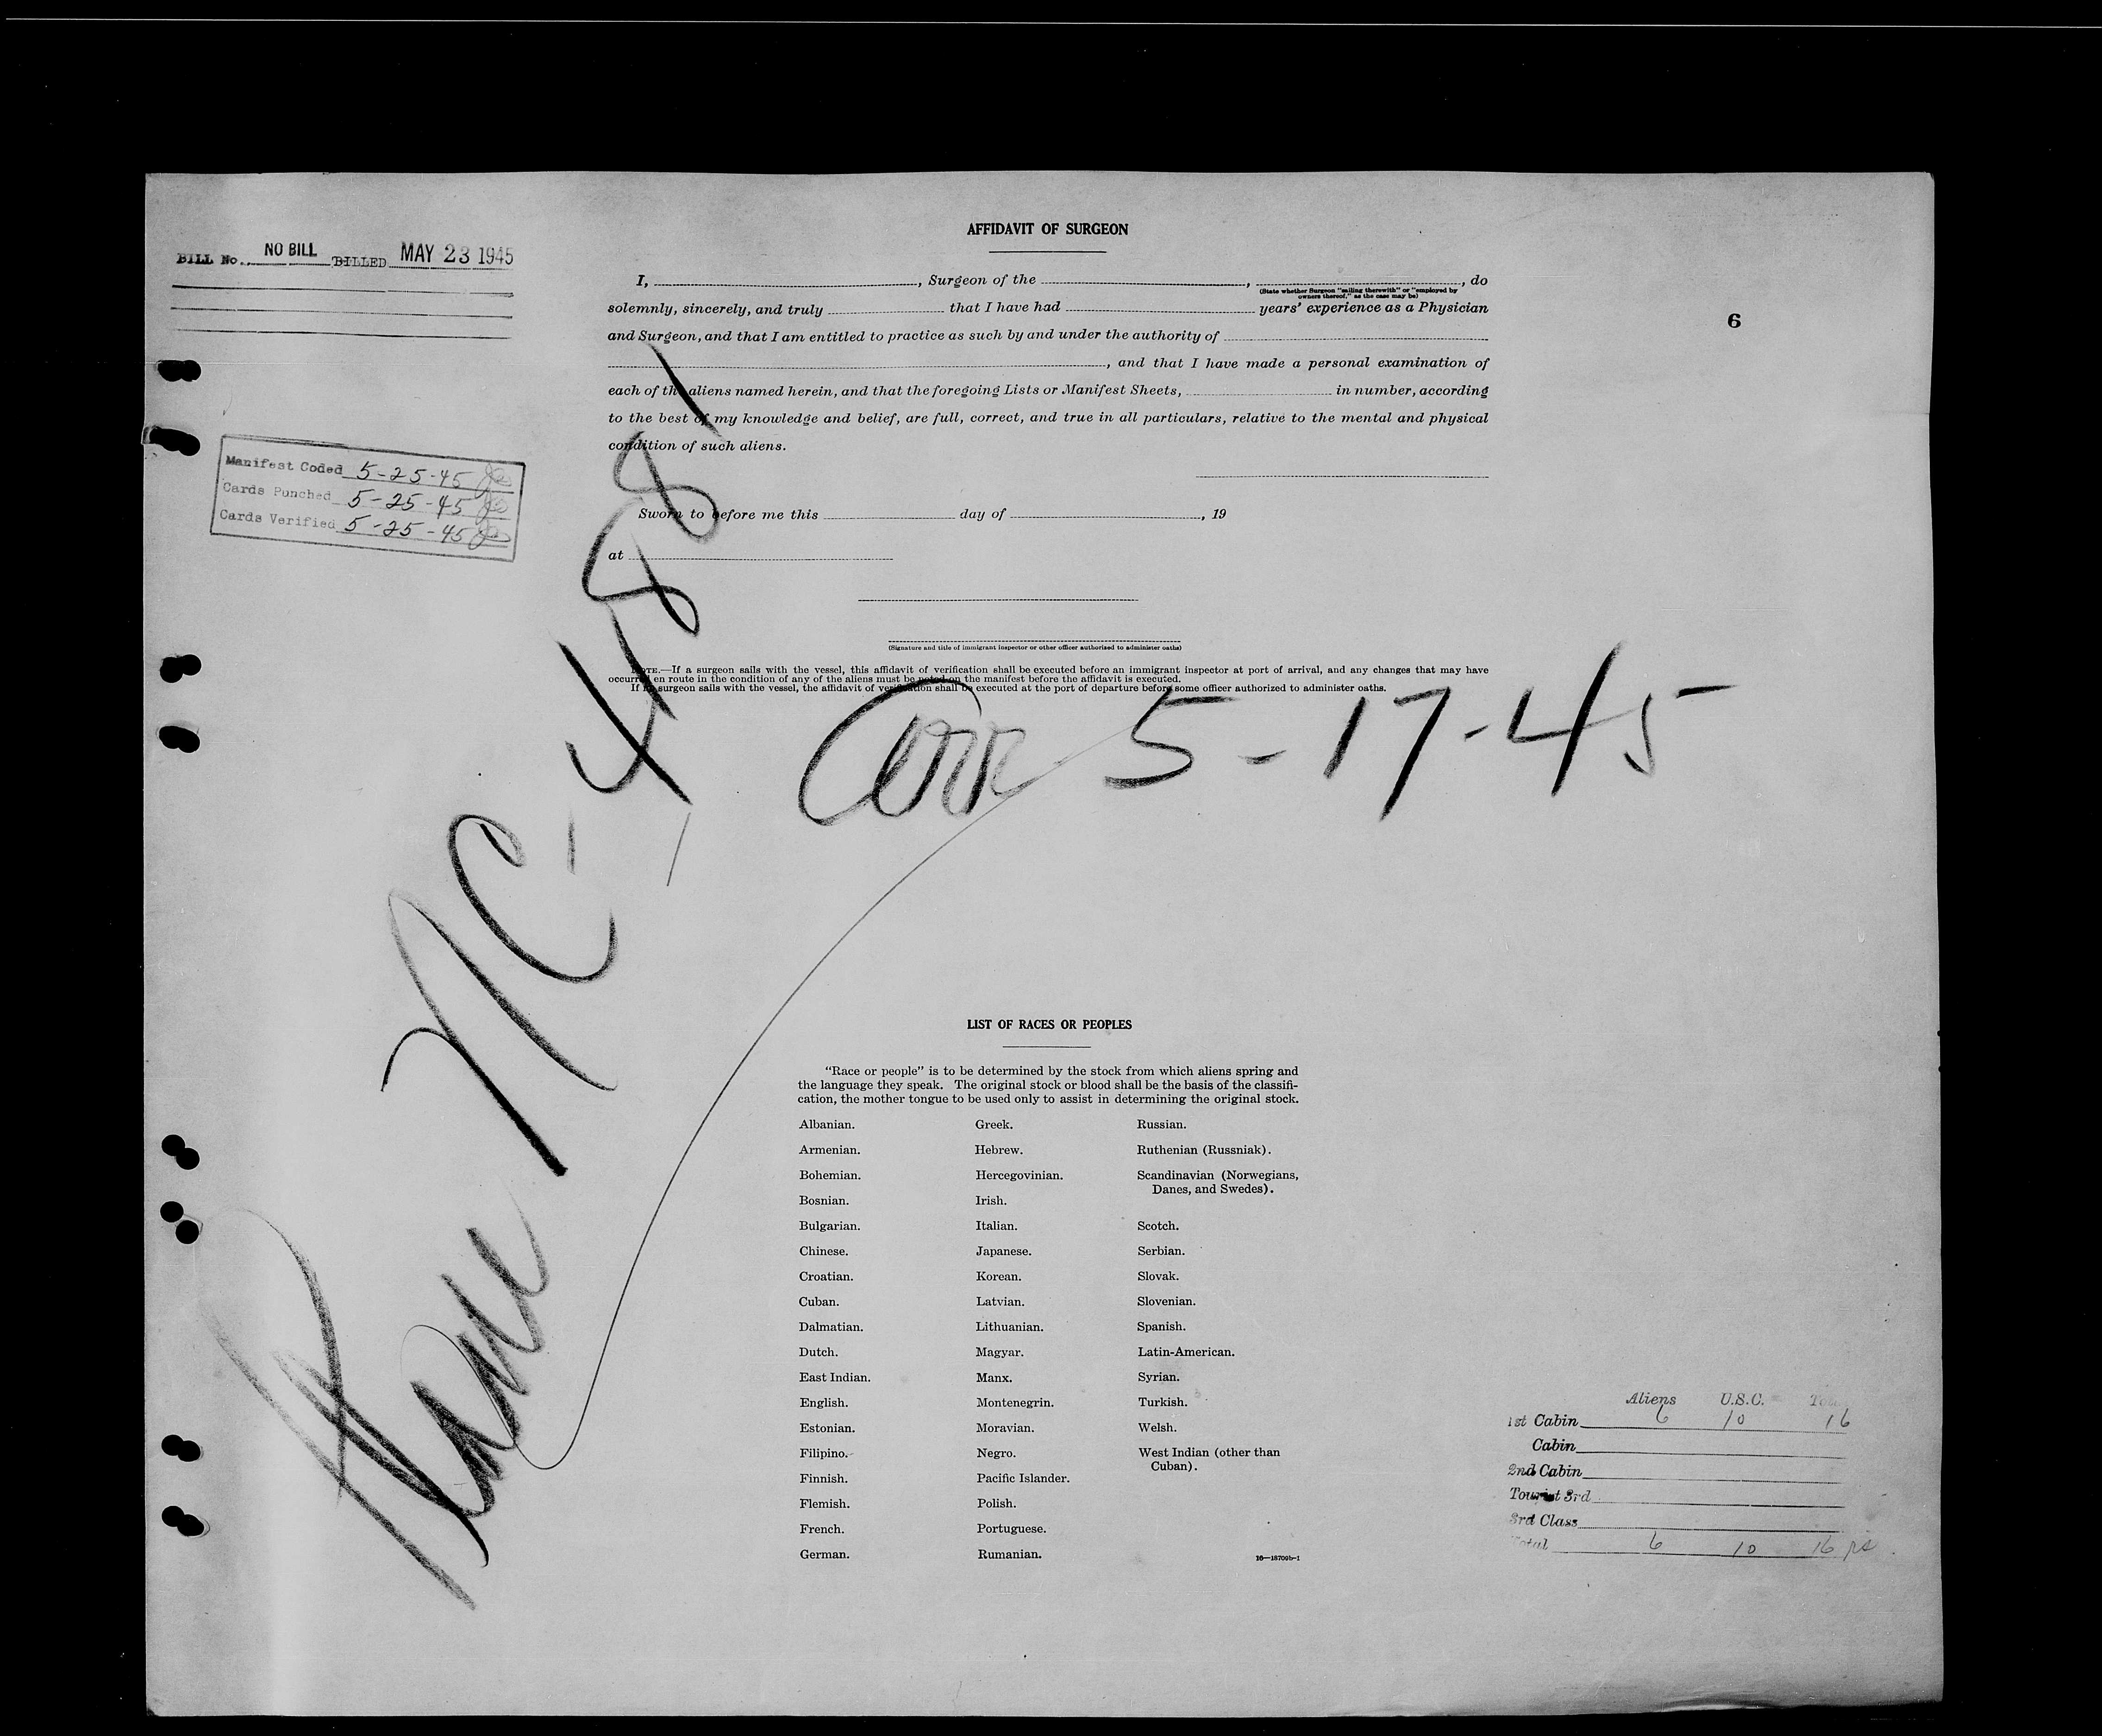 BILL No. NO BILL BILLED MAY 23 1945
Manifest Coded 5-25-45
Cards Punched 5-25-45
Cards Verified 5-25-45
AFFIDAVIT OF SURGEON
6
I, , Surgeon of the , , do
(State whether Surgeon "sailing therewith" or "employed by
owners thereof," as the case may be)
solemnly, sincerely, and truly that I have had years' experience as a Physician
and Surgeon, and that I am entitled to practice as such by and under the authority of
, and that I have made a personal examination of
each of the aliens named herein, and that the foregoing Lists or Manifest Sheets, in number, according
to the best of my knowledge and belief, are full, correct, and true in all particulars, relative to the mental and physical
condition of such aliens.
Sworn to before me this day of , 19
at
(Signature and title of immigrant inspector or other officer authorized to administer oaths)
NOTE.—If a surgeon sails with the vessel, this affidavit of verification shall be executed before an immigrant inspector at port of arrival, and any changes that may have
occurred en route in the condition of any of the aliens must be noted on the manifest before the affidavit is executed.
If no surgeon sails with the vessel, the affidavit of verification shall be executed at the port of departure before some officer authorized to administer oaths.
Plane NC-4881
5-17-45
LIST OF RACES OR PEOPLES
"Race or people" is to be determined by the stock from which aliens spring and
the language they speak. The original stock or blood shall be the basis of the classifi-
cation, the mother tongue to be used only to assist in determining the original stock.
Albanian. Greek. Russian.
Armenian. Hebrew. Ruthenian (Russniak).
Bohemian. Hercegovinian. Scandinavian (Norwegians,
Danes, and Swedes).
Bosnian. Irish.
Bulgarian. Italian. Scotch.
Chinese. Japanese. Serbian.
Croatian. Korean. Slovak.
Cuban. Latvian. Slovenian.
Dalmatian. Lithuanian. Spanish.
Dutch. Magyar. Latin-American.
East Indian. Manx. Syrian.
English. Montenegrin. Turkish.
Estonian. Moravian. Welsh.
Filipino. Negro. West Indian (other than
Cuban).
Finnish. Pacific Islander.
Flemish. Polish.
French. Portuguese.
German. Rumanian.
16—18709b-1
Aliens U.S.C.
1st Cabin 6 10 16
Cabin
2nd Cabin
Tourist 3rd
3rd Class
Total 6 10 16